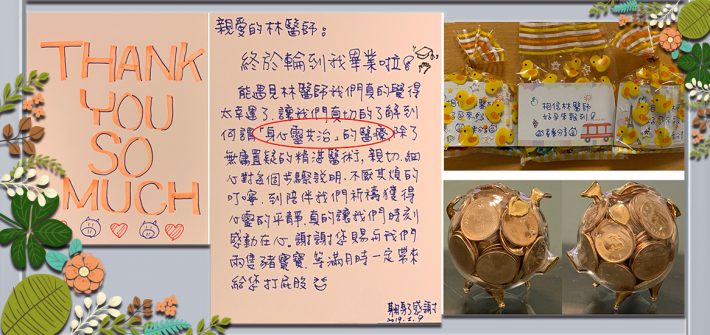 THANK
YOU
SO
MUCH
親愛的林醫師:
終於輪到我畢業啦!
能遇見林醫師我們真的覺得
太幸運了,讓我們真切的了解到
何謂「身心靈共治」的醫療,除了
無庸置疑的精湛醫術,親切、細
心對每個步驟說明,不厭其煩的
叮嚀,到陪伴我們祈禱獲得
心靈的平靜,真的讓我們時刻
感動在心。謝謝您賜與我們
兩隻豬寶寶,等滿月時一定帶來
給您打屁股
鞠躬感謝
相信林醫師
好孕來報到!